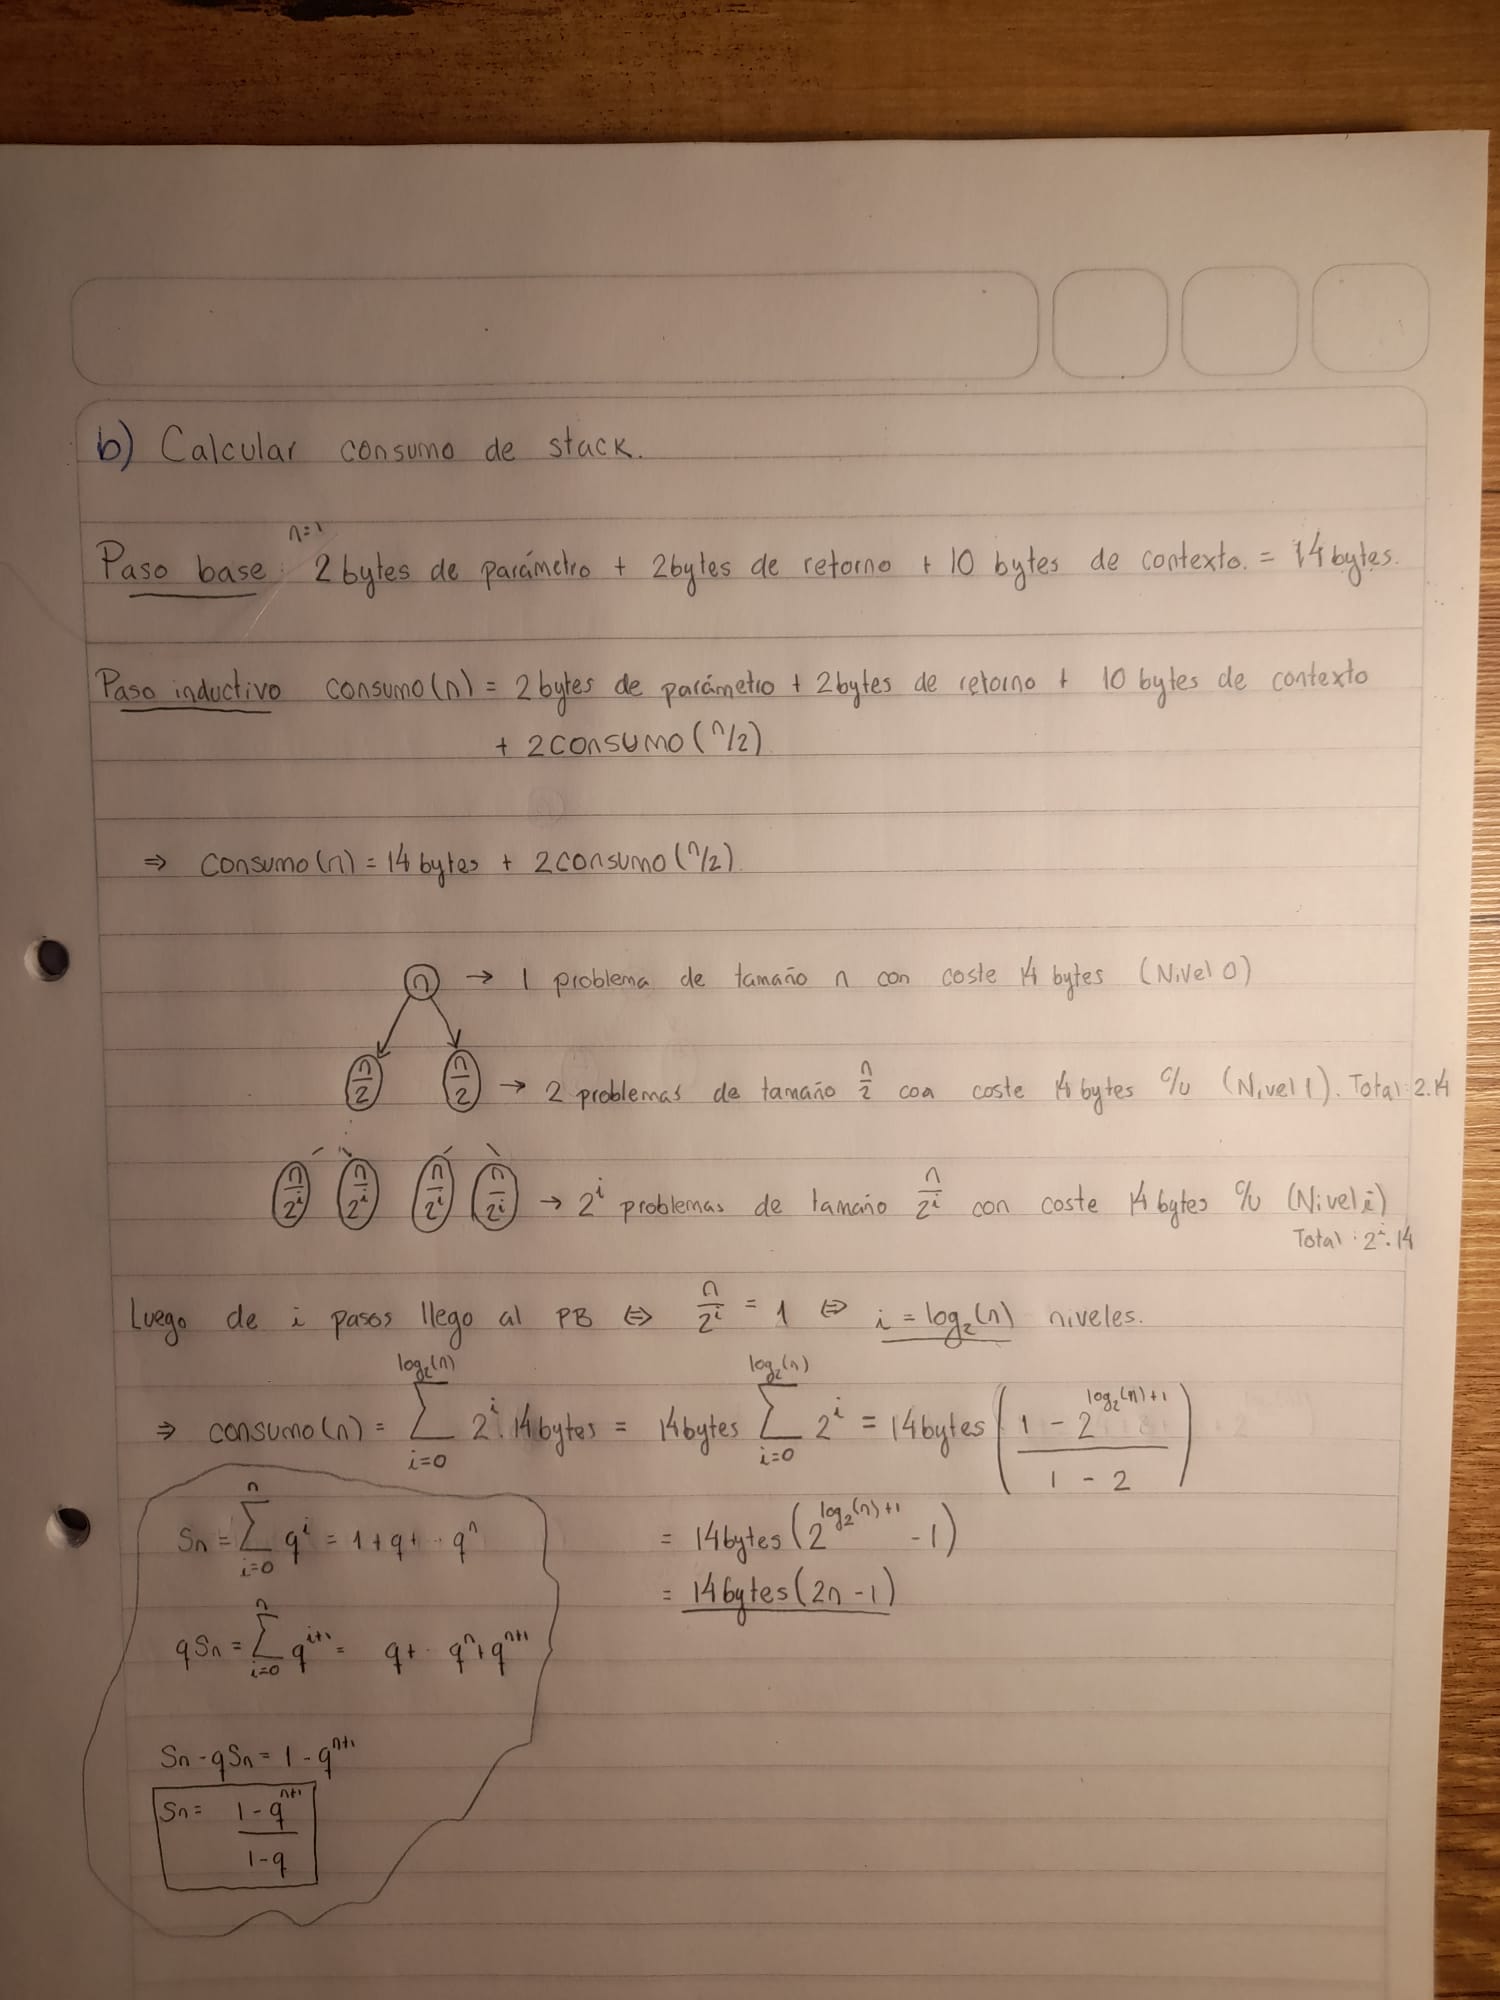 b) Calcular consumo de stack.
n=1
Paso base: 2 bytes de parámetro + 2bytes de retorno + 10 bytes de contexto. = 14 bytes.
Paso inductivo consumo(n) = 2 bytes de parámetro + 2 bytes de retorno + 10 bytes de contexto
+ 2consumo(n/2)
⇒ consumo(n) = 14 bytes + 2consumo(n/2).
n → 1 problema de tamaño n con coste 14 bytes (Nivel 0)
n/2 n/2 → 2 problemas de tamaño n/2 con coste 14 bytes c/u (Nivel 1). Total: 2.14
n/2^i n/2^i n/2^i n/2^i → 2^i problemas de tamaño n/2^i con coste 14 bytes c/u (Nivel i)
Total: 2^i.14
Luego de i pasos llego al PB ⇔ n/2^i = 1 ⇔ i = log₂(n) niveles.
⇒ consumo(n) = Σ_{i=0}^{log₂(n)} 2^i . 14 bytes = 14 bytes Σ_{i=0}^{log₂(n)} 2^i = 14 bytes ((1 - 2^{log₂(n)+1})/(1 - 2))
= 14 bytes (2^{log₂(n)+1} - 1)
= 14 bytes (2n - 1)
Sn = Σ_{i=0}^{n} q^i = 1 + q + ·· q^n
qSn = Σ_{i=0}^{n} q^{i+1} = q + ·· q^n + q^{n+1}
Sn - qSn = 1 - q^{n+1}
Sn = (1 - q^{n+1})/(1 - q)